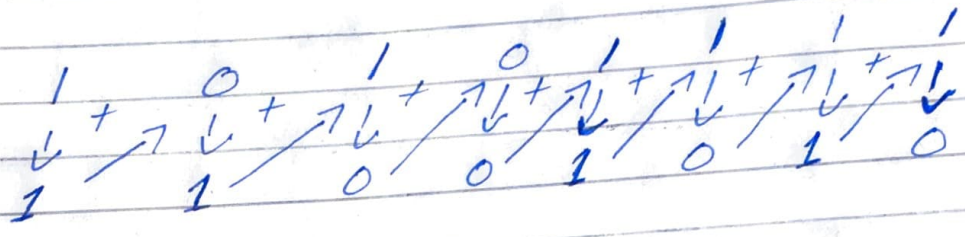 1 0 1 0 1 1 1 1
+ + + + + + +
1 1 0 0 1 0 1 0